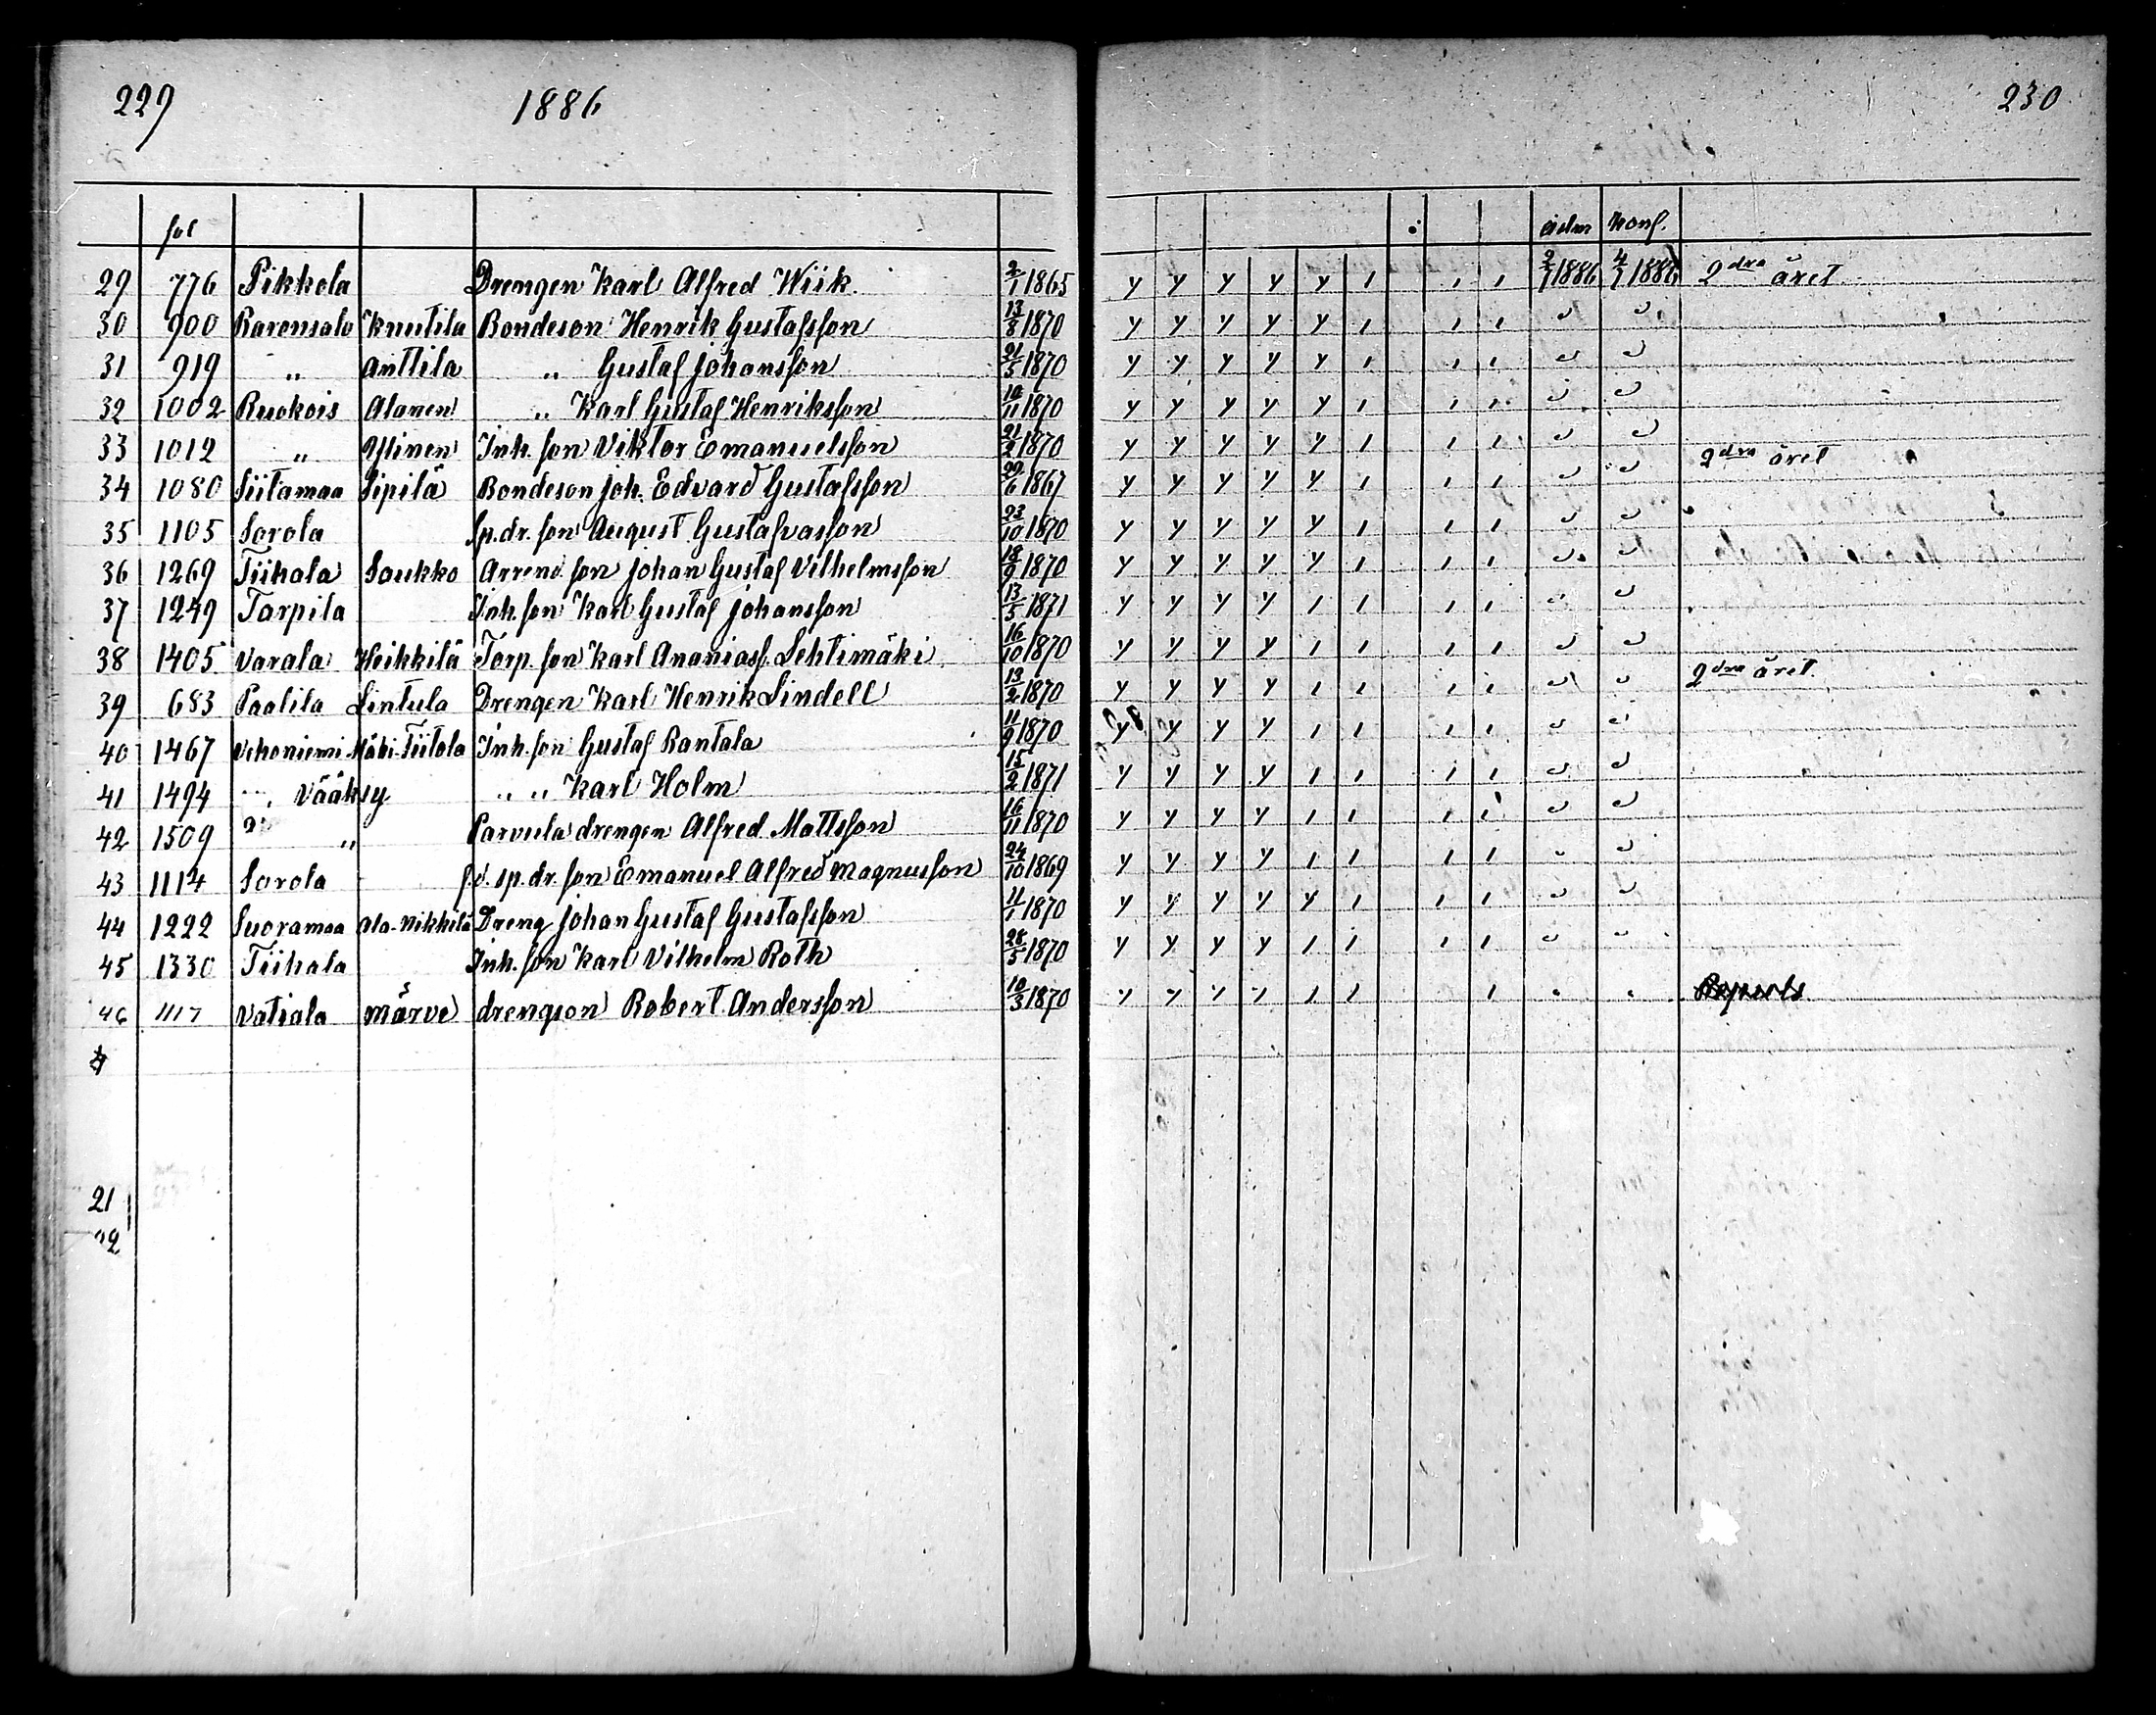 229 1886 230
fol adm Konf.
29 776 Pikkola Drengen Karl Alfred Wiik. 2/1 1865 y y y y y 1 1 1 2/7 1886 4/7 1886 2dra året
30 900 Baronsalo Knuutila Bondeson Henrik Gustafsson 13/8 1870 y y y y y 1 1 1 " "
31 919 " Anttila " Gustaf Johansson 21/5 1870 y y y y y 1 1 1 " "
32 1002 Ruokois Alanen " Karl Gustaf Henriksson 10/11 1870 y y y y y 1 1 1 " "
33 1012 " Yllinen Inh. son Viktor Emanuelsson 21/2 1870 y y y y y 1 1 1 " "
34 1080 Siitamaa Sipilä Bondeson Joh. Edvard Gustafsson 29/6 1867 y y y y y 1 1 1 " " 2dra året
35 1105 Sorola Sp.dr. son August Gustafvasson 23/10 1870 y y y y y 1 1 1 " "
36 1269 Tiihala Soukko Arrend. son Johan Gustaf Vilhelmsson 18/9 1870 y y y y y 1 1 1 " "
37 1249 Tarpila Inh. son Karl Gustaf Johansson 13/5 1871 y y y y 1 1 1 1 " "
38 1405 Varala Heikkilä Torp. son Karl Ananiass. Lehtimäki 16/10 1870 y y y y 1 1 1 1 " "
39 683 Paalila Lintula Drengen Karl Henrik Lindell 13/2 1870 y y y y 1 1 1 1 " " 2dra året.
40 1467 Vehoniemi Mäki-Tiitola Inh. son Gustaf Rantala 11/9 1870 y y y y 1 1 1 1 " "
41 1494 " Vääksy " " Karl Holm 15/2 1871 y y y y 1 1 1 1 " "
42 1509 " " Parvula drengen Alfred Mattsson 16/11 1870 y y y y 1 1 1 1 " "
43 1114 Sorola f.d. sp. dr. son Emanuel Alfred Magnusson 24/10 1869 y y y y 1 1 1 1 " "
44 1222 Suoramaa Ala-Nikkilä Dreng Johan Gustaf Gustafsson 11/1 1870 y y y y y 1 1 1 " "
45 1330 Tiihala Inh. son Karl Vilhelm Roth 28/5 1870 y y y y 1 1 1 1 " "
46 1117 Vatiala Märve drengson Robert Andersson 10/3 1870 y y y y 1 1 1 " "
21
22